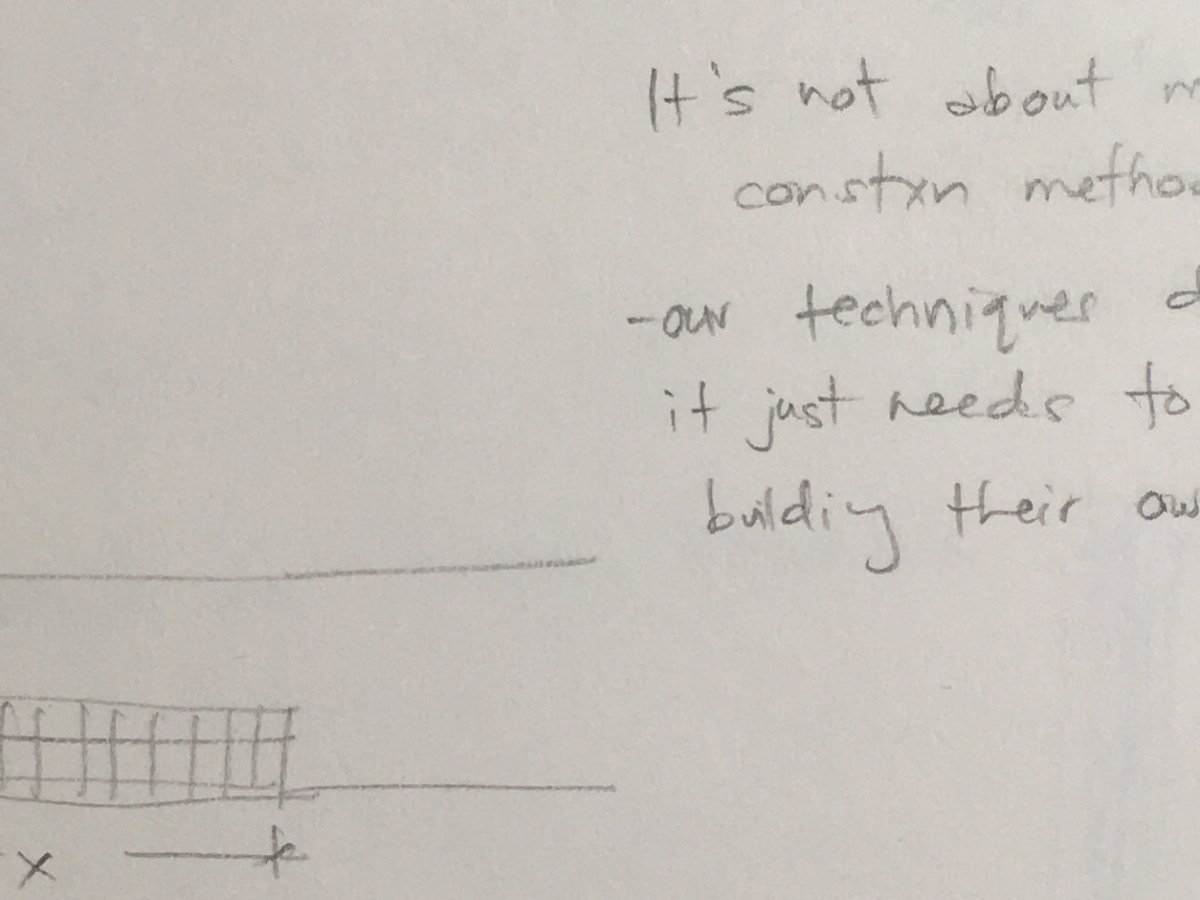 It's not about
constxn
-our techniques
it just needs to
buildiy their
x